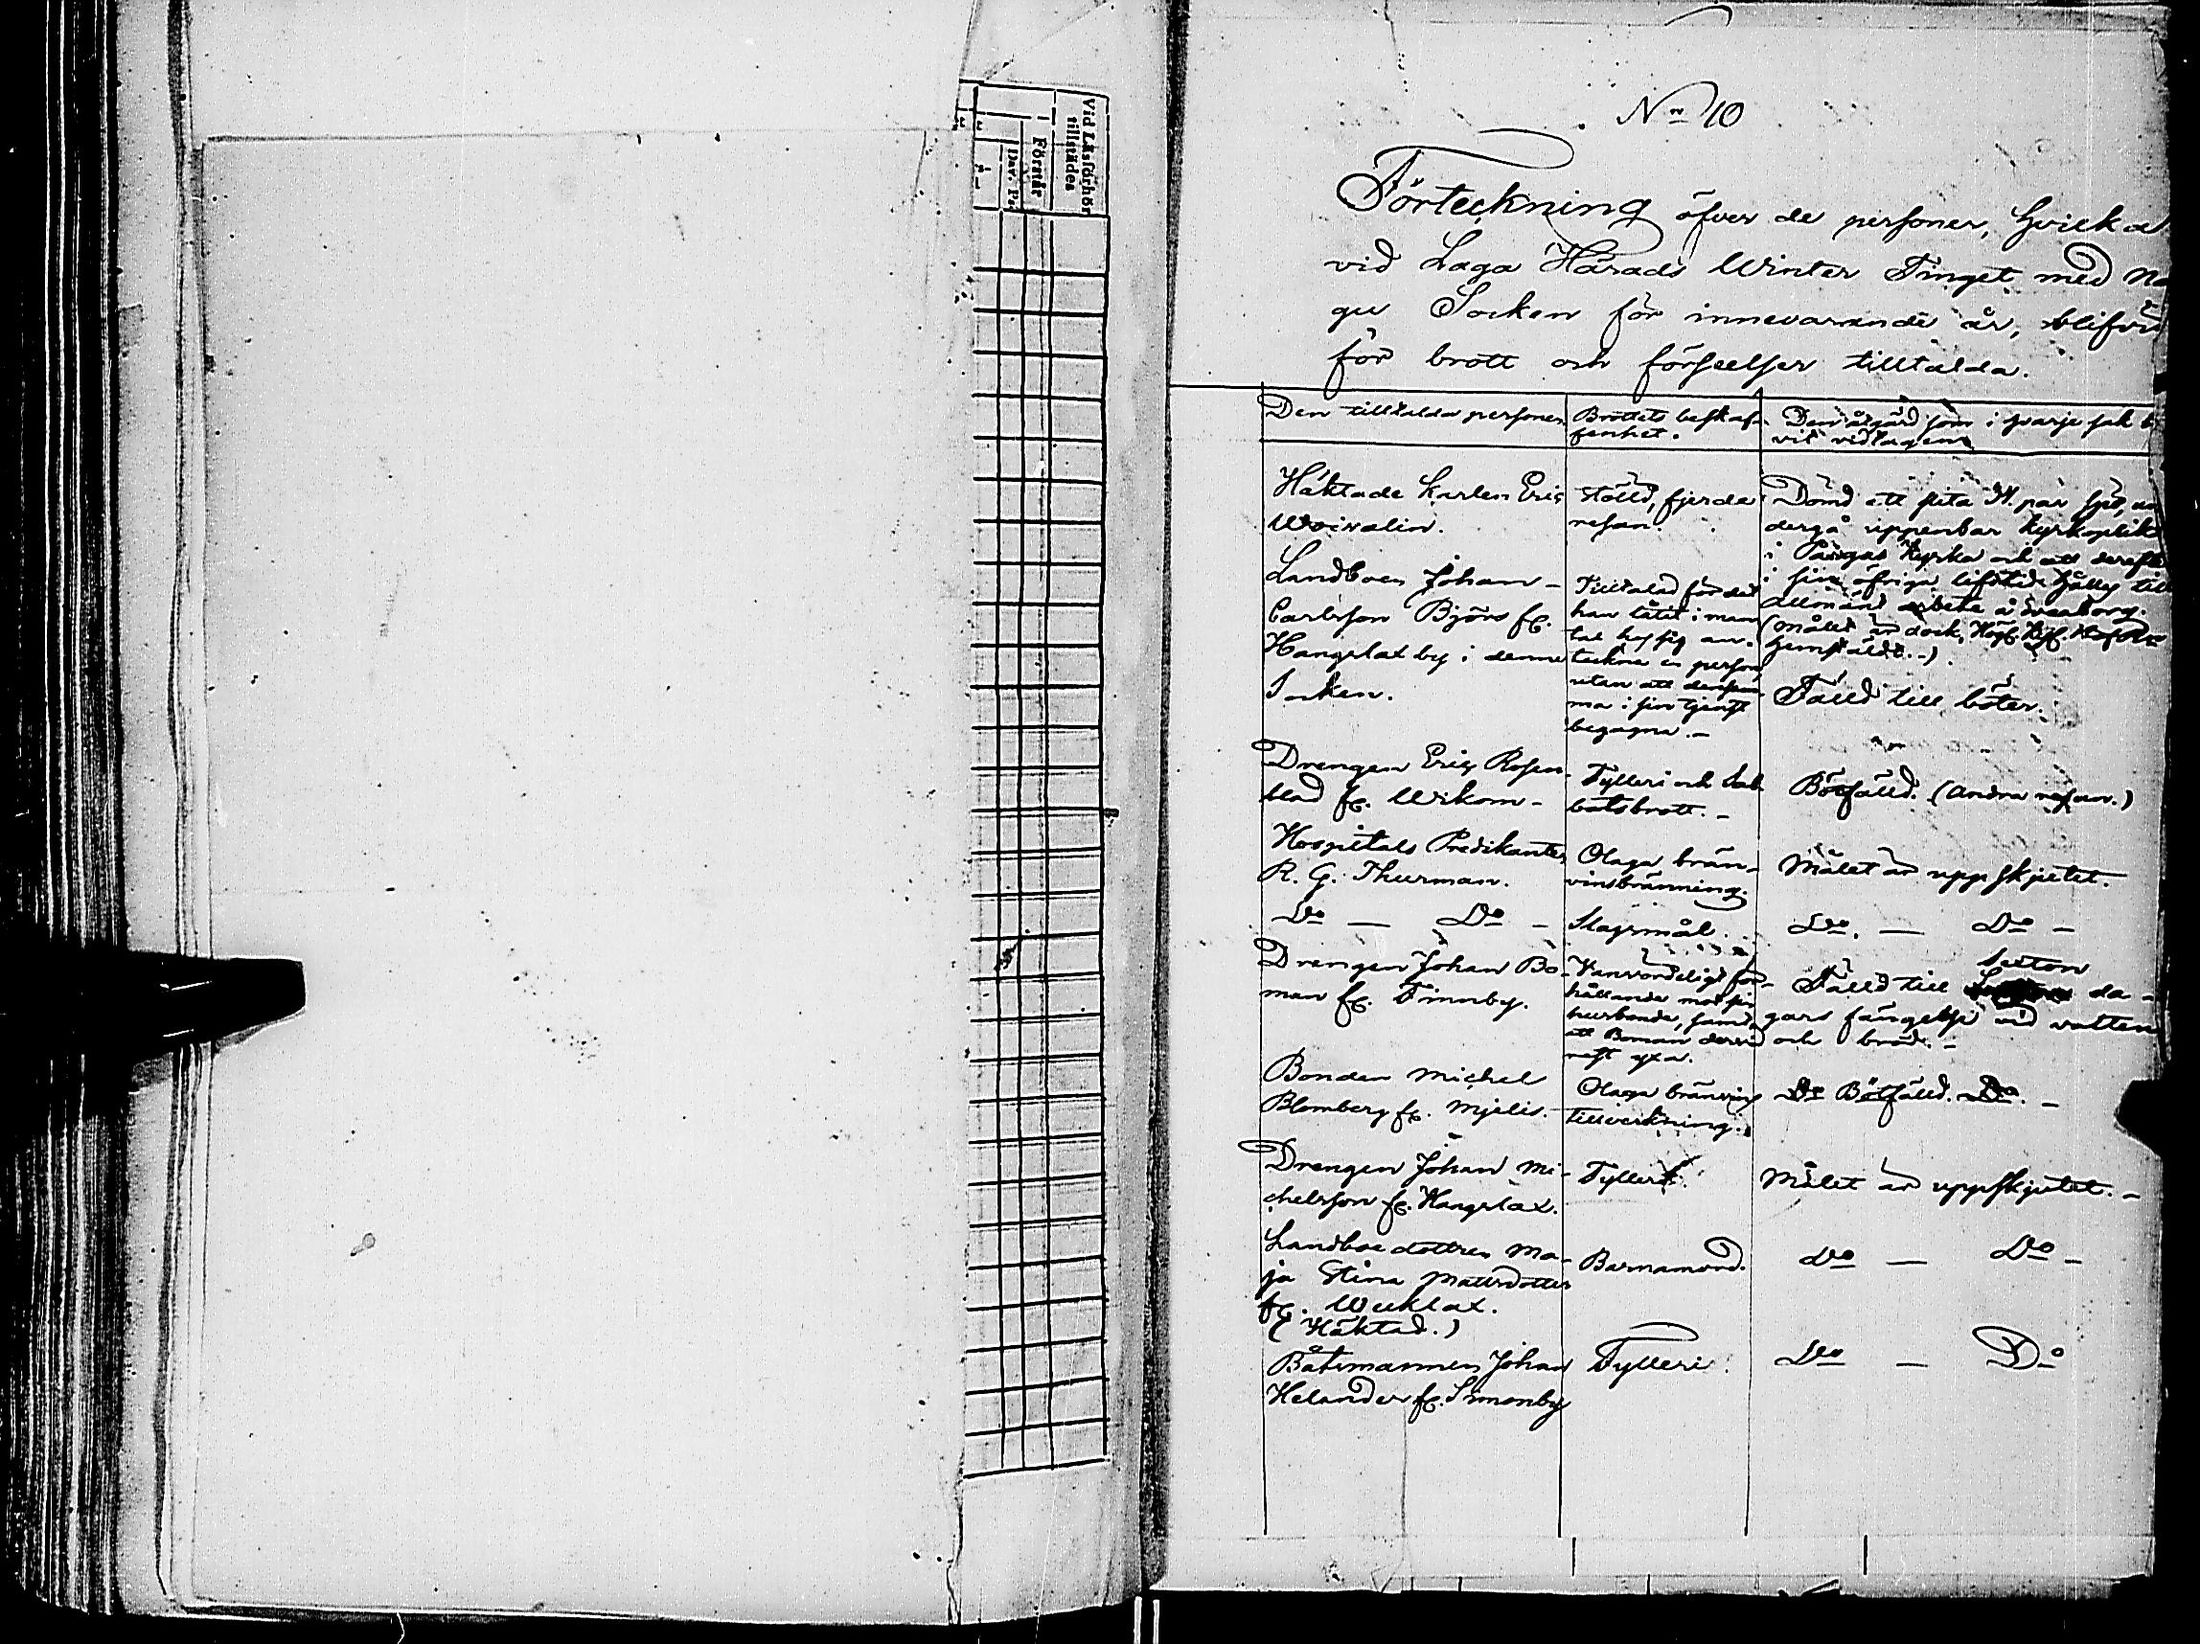 Vid Läsförhör
tillstädes
Förstår
Dav. Ps.
No 10
Förteckning öfver de personer, hvilka
vid Laga Härads Winter Tinget med Na
gu Socken för innevarande år, blifvit
för brott och förseelser tilltalda.
Den tilltalda personen
Brottets beskaf-
fenhet.
Den åtgärd som i hvarje sak b
vit vidtagen
Häktade karlen Eric
Woivalin.
Stöld, fjerde
resan.
Dömd att slita 34 par spö, un
dergå uppenbar kyrkoplikt
i Pargas Kyrka och att dereft
i sin öfriga lifstid hållas till
allmänt arbete å Sveaborg.
(målet är dock, Högl. Kejs. HofRtn
hemstäldt.-)
Landboen Johan
Carlsson Björs fr.
Hangslax by i denne
Socken.
Tilltalad för det
han låtit i man
tal hos sig an-
teckna en person,
utan att densam
ma i sin tjenst
begagna.-
Fälld till böter.
Drengen Eric Rosen-
blad fr. Wikom-
Fylleri och Sab
batsbrott.-
Bötfälld. (Andra resan.)
Hospitals Predikanten
R. G. Thurman.
Olaga brän-
vinsbränning.
Målet är uppskjutet.
Do — Do -
Slagsmål.
Do. — Do -
Drengen Johan Bo-
man fr. Finnby.
Vanvördeligt för-
hållande mot sin
husbonde, samt
att Boman dervid
rest yxa.
Sexton
Fälld till da-
gars fängelse vid vatten
och bröd.-
Bonden Michel
Blomberg fr. Mjelis.
Olaga bränvins
tillverkning.
Do Bötfälld. Do. -
Drengen Johan Mi-
chelsson fr. Hangslax.
Fylleri.
Målet är uppskjutet.-
Landboe dottren Ma-
ja Stina Mattsdotter
fr. Wiklax.
(Häktad.)
Barnamord.
Do — Do -
Båtsmannen Johan
Helander fr. Simonby
Fylleri.
Do — Do